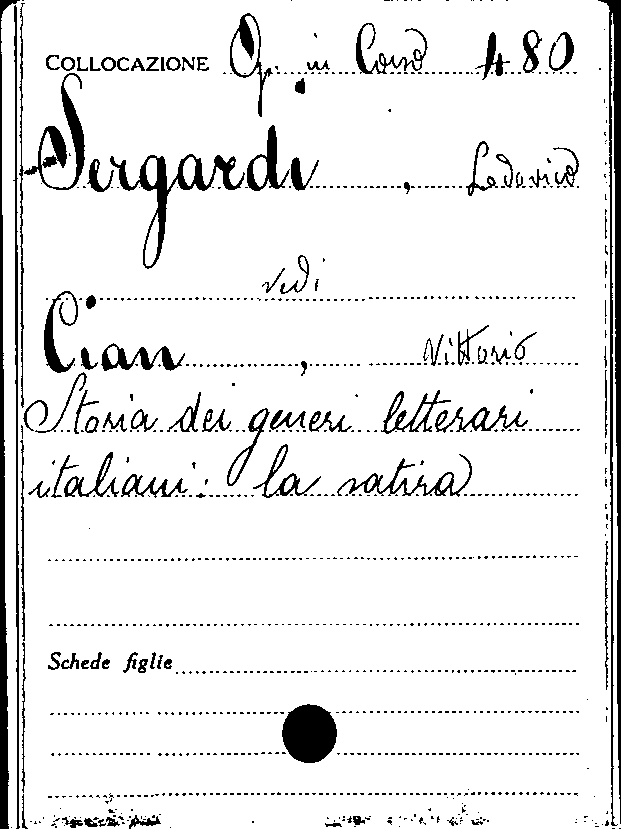 COLLOCAZIONE Op. in Corso 480
Sergardi, Lodovico
vedi
Cian, Vittorio
Storia dei generi letterari
italiani: la satira
Schede figlie